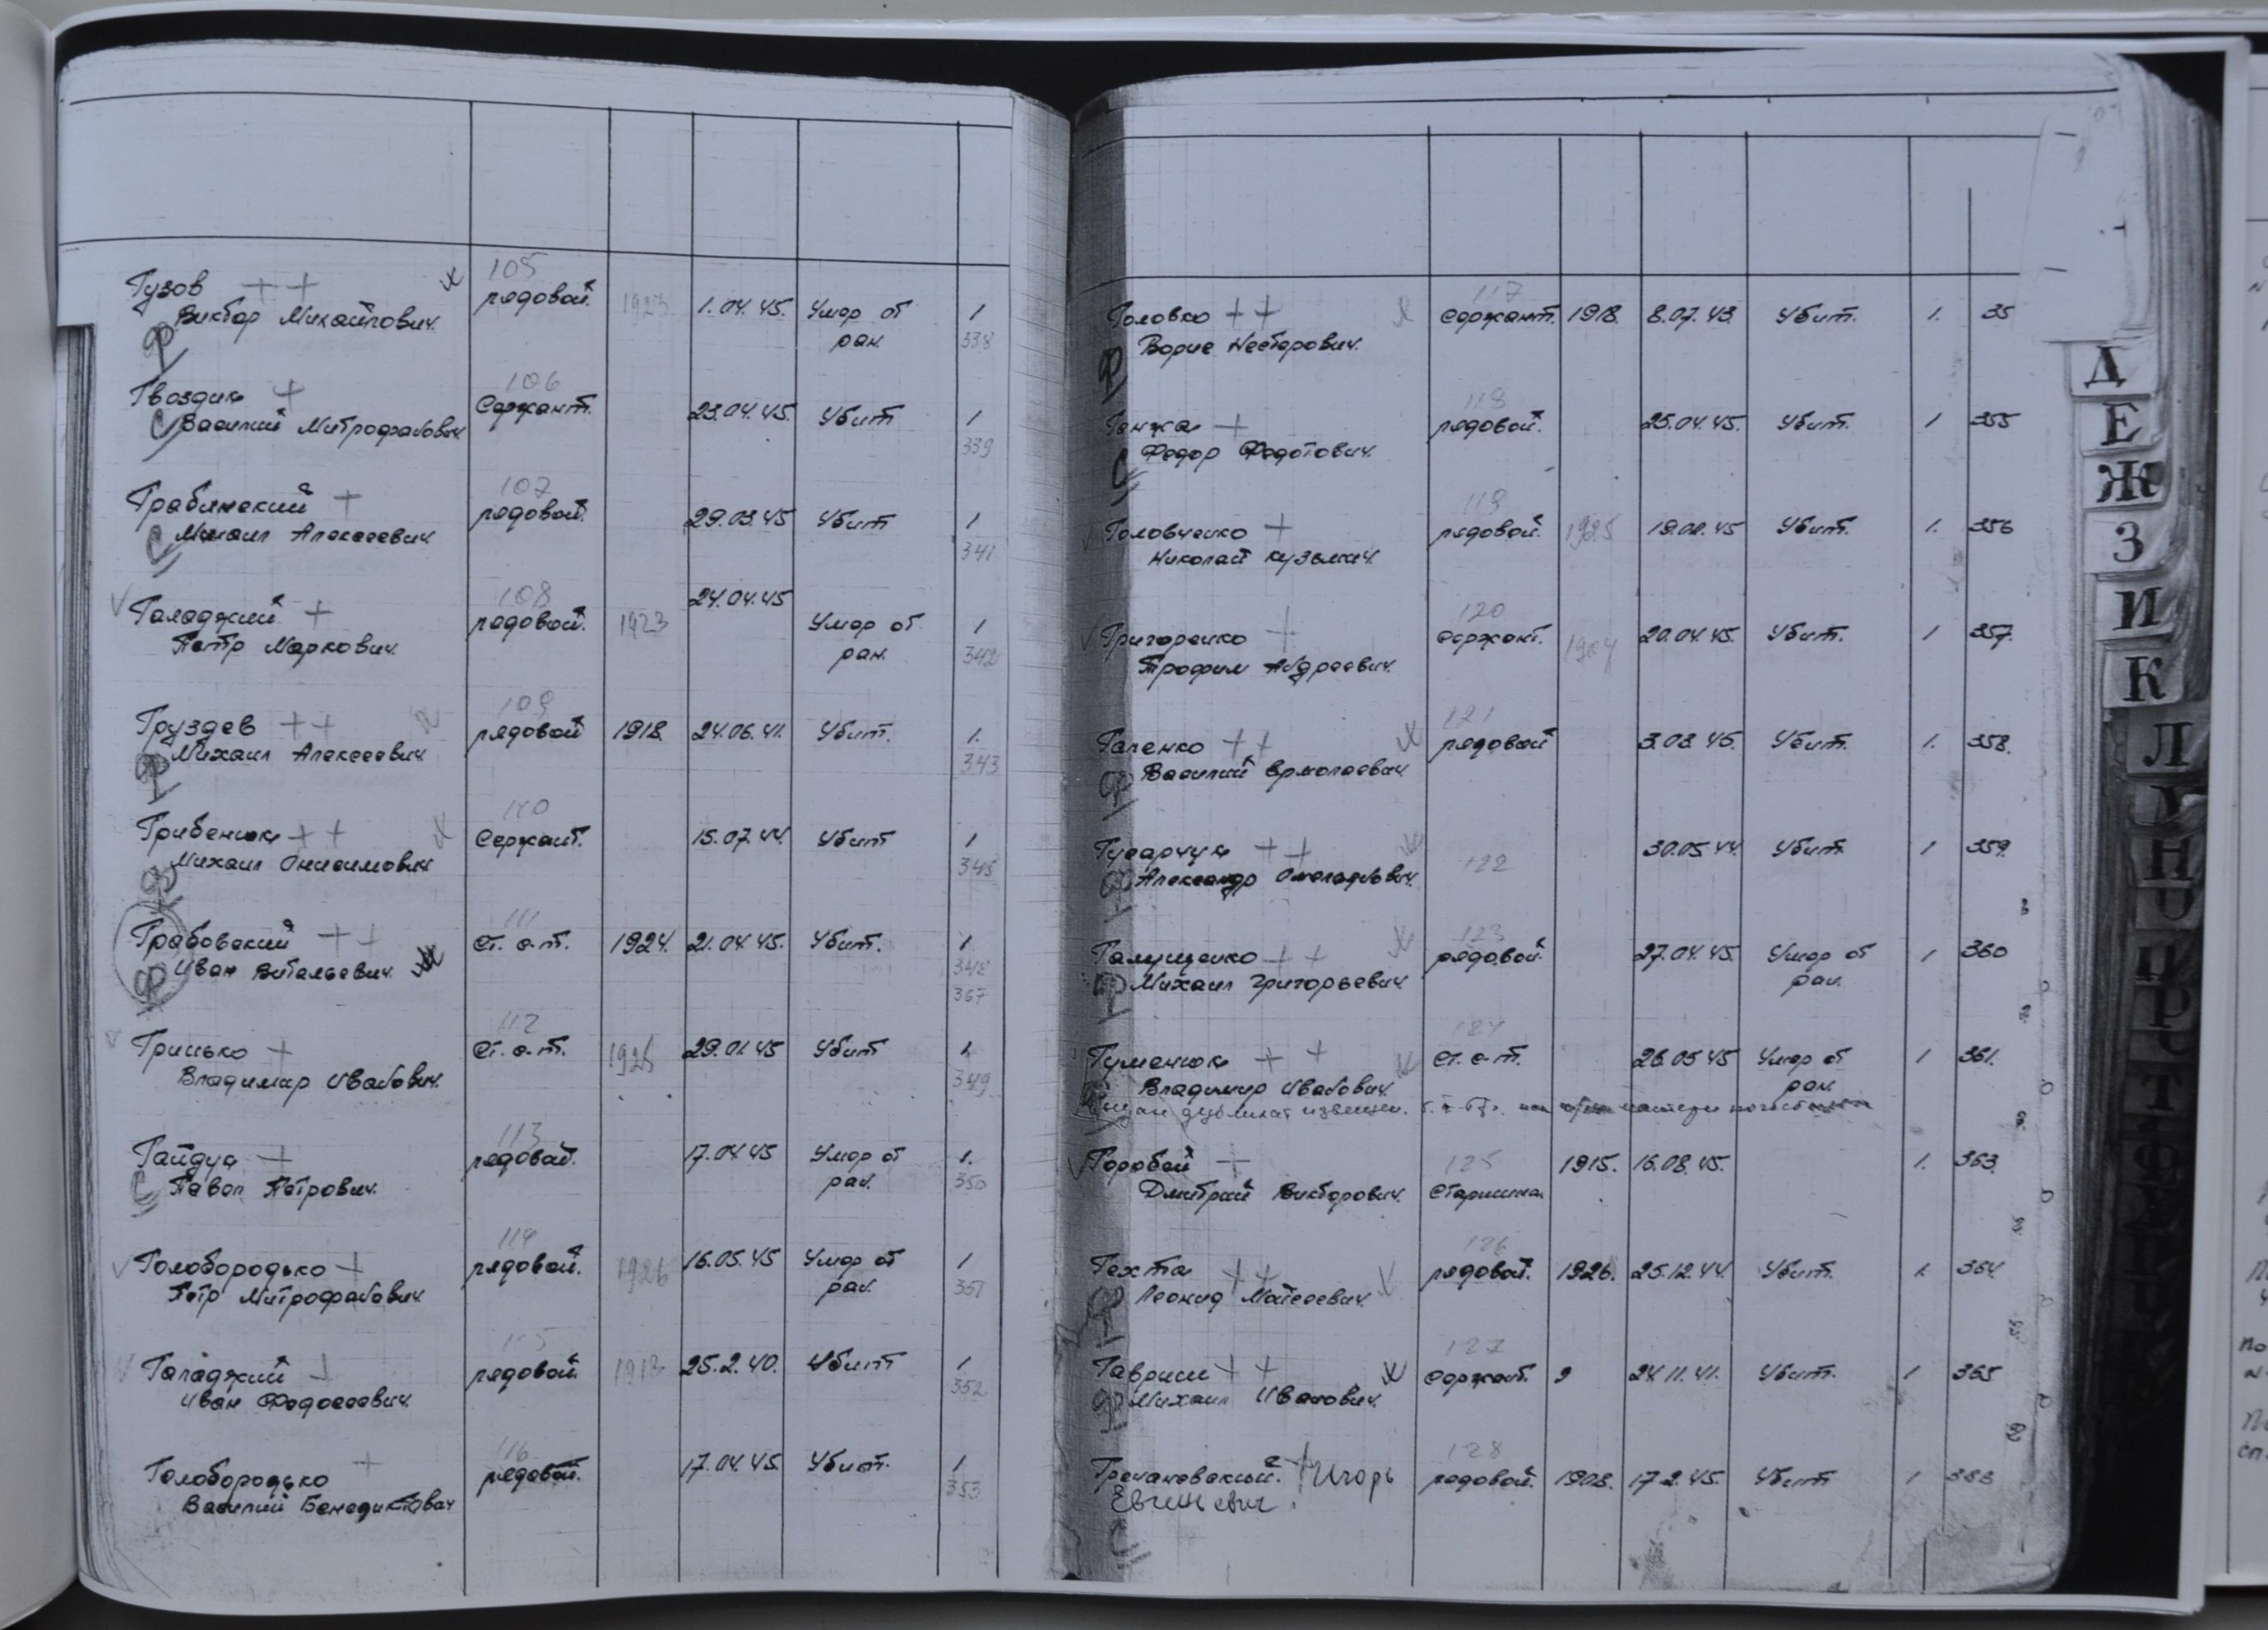 105
Гузов ++ рядовой. 1923 1.04.45. Умер от 1
Виктор Михайлович. ран. 338
Ф
106
Гвоздик + Сержант. 23.04.45. Убит 1
С Василий Митрофанович 339
107
Грабинский + рядовой. 29.03.45 Убит 1
С Михаил Алексеевич 341
108
Галаджий + рядовой. 1923 24.04.45 Умер от 1
Петр Маркович. ран. 342
109
Груздев ++ рядовой 1918. 24.06.41. Убит. 1.
Ф Михаил Алексеевич 343
110
Грибенюк ++ Сержант. 15.07.44. Убит 1
Михаил Онисимович 345
Ф
111
Грабовский ++ ст. с-т. 1924. 21.04.45. Убит. 1
Ф Иван Витальевич. 348
367
112
Гринько + ст. с-т. 1925 29.01.45 Убит 1.
Владимир Иванович. 349
113
Гайдук + рядовой. 17.04.45 Умер от 1.
С Павел Петрович. ран. 350
114
Голобородько + рядовой. 1926 16.05.45 Умер от 1
Петр Митрофанович ран. 351
115
Галаджий + рядовой 1913 25.2.40. Убит 1
Иван Федосеевич. 352
116
Голобородько + рядовой. 17.04.45. Убит. 1.
Василий Бенедиктович 353
117
Головко ++ сержант. 1918. 8.07.43. Убит. 1. 35
Борис Нестерович.
Ф
118
Ганжа + рядовой. 25.04.45. Убит. 1 355
Федор Федотович.
С
119
Головченко + рядовой. 1925 19.02.45 Убит. 1. 356
Николай Кузьмич.
120
Григоренко + сержант. 1904 20.04.45. Убит. 1 357.
Трофим Андреевич.
121
Галенко ++ рядовой 3.03.45. Убит. 1. 358.
Ф Василий Ермолаевич
Гусарчук ++ 122 30.05.44. Убит. 1 359.
Ф Александр Омельянович.
123
Галущенко ++ рядовой. 27.04.45. Умер от 1 360
Ф Михаил Григорьевич ран.
124
Гуменюк ++ ст. с-т. 26.05.45 Умер от 1 361.
Владимир Иванович. ран.
Выдан дубликат извещен.
Горобей + 125 1915. 16.08.45. 1. 363
Дмитрий Викторович. Старшина
126
Гехта ++ рядовой. 1926. 25.12.44. Убит. 1. 364
Ф Леонид Матвеевич.
127
Гавриш ++ сержант. 9 24.11.41. Убит. 1 365
Ф Михаил Иванович.
128
Гречановский. + Игорь рядовой. 1908. 17.2.45. Убит 1 383
Евгиневич.
Д
Е
Ж
З
И
К
Л
Н
О
П
Р
С
Т